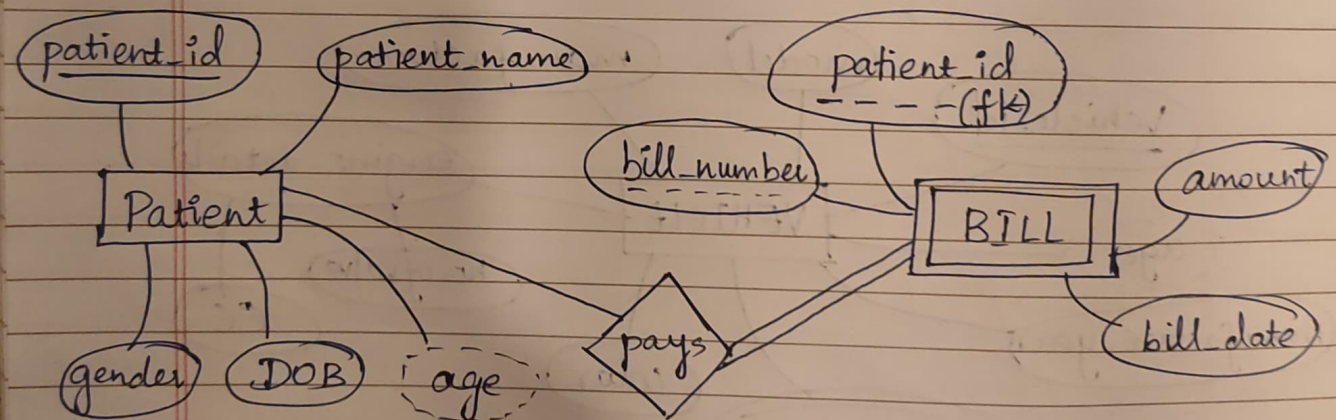 patient_id
patient_name
patient_id
(fk)
bill_number
amount
Patient
BILL
pays
bill_date
gender
DOB
age